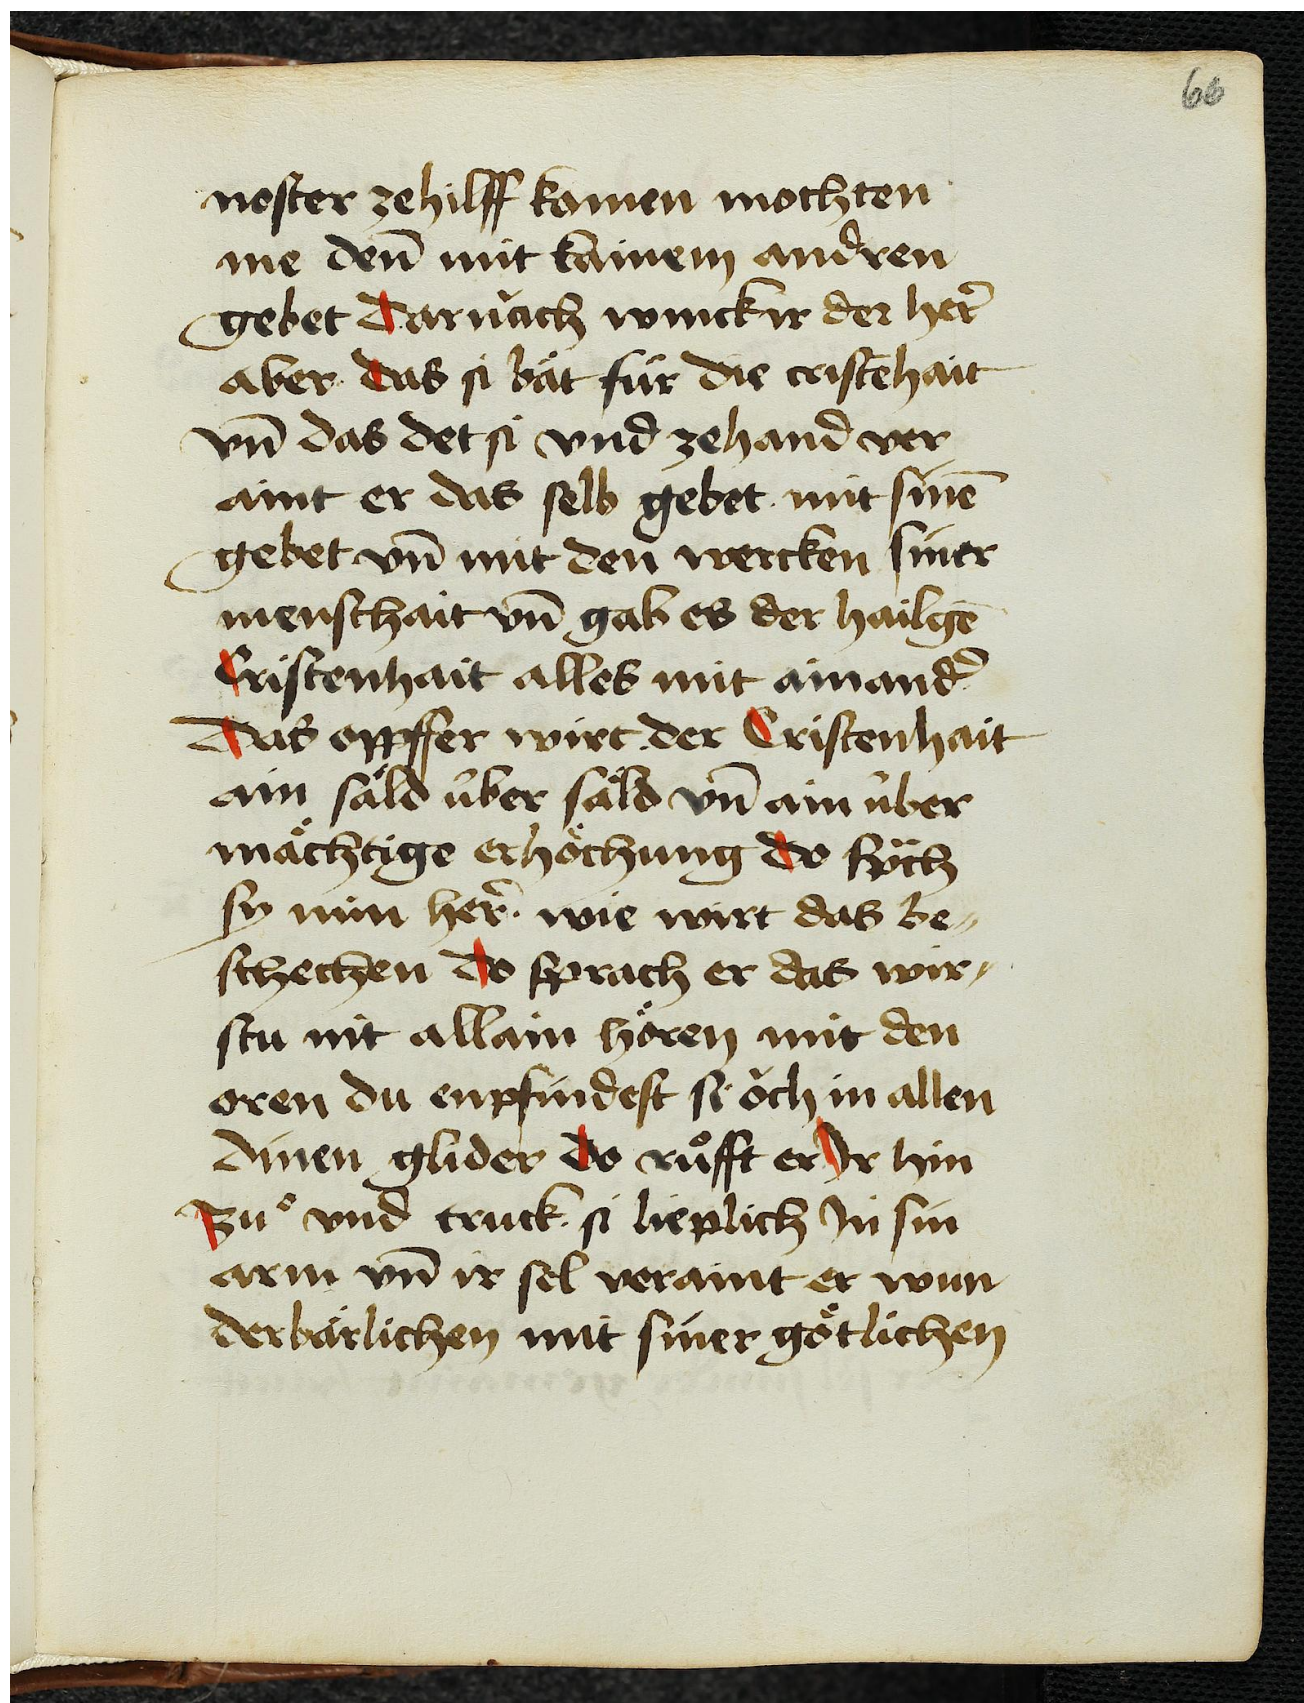 66
noster ze hilff komen mochten
me den̄ mit kainem andren
gebet Darnach winckt ir der her̄
aber das si bät für die cristēhait
vn̄ das det si vnd zehand ver
aint er das selb gebet mit sinē
gebet vn̄ mit den wercken siner
menschait vn̄ gab es der hailgē
Cristenhait alles mit ainandr̄
Das opffer wirt der Cristenhait
ain säld über säld vn̄ ain über
mächtige erhöchung do sp̈ch
sy min her̄ wie wirt das be⸗
schechen do sprach er das wir⸗
stu nit allain hören mit den
oren du enpfindest si öch in allen
dinen glider do růfft er Ir hin
Zuͦ vnd truck si lieplich In sin
arm vn̄ ir sel veraint er wun
derbärlichen mit siner götlichen